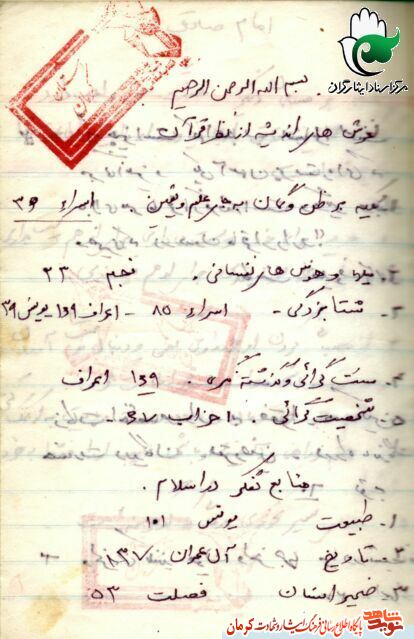 مرکز اسناد ایثارگران
بسم الله الرحمن الرحیم
لغزش های اندیشه از نظر قرآن
۱. تکیه بر ظن و گمان به جای علم و یقین اسراء ۳۶
۲. میلها و هوس های نفسانی. نجم ۲۳
۳. شتابزدگی - اسراء ۸۵ - اعراف ۱۶۹ یونس ۳۹
۴. سنت گرائی و گذشته نگری. اعراف
۵. شخصیت گرائی. احزاب ۶۷
منابع تفکر در اسلام.
۱. طبیعت یونس ۱۰۱
۲. تاریخ آل عمران ۱۳۷
۳. ضمیر انسان فصلت ۵۳
نوید شاهد
پایگاه اطلاع رسانی فرهنگ ایثار و شهادت کرمان